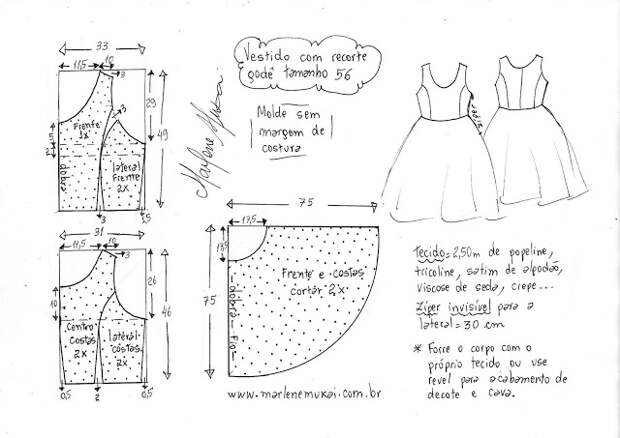 Vestido com recorte
godê tamanho 56
Molde sem
margem de
costura
Marlene Mukai
33
11,5
10
3
3
29
49
15
2
Frente
1x
dobra
lateral
Frente
2x
3
1,5
31
11,5
10
3
26
46
10
Centro
costas
2x
lateral
costas
2x
0,5
2
0,5
75
17,5
17,5
75
Frente e costas
cortar 2x
dobra
Fio
www.marlenemukai.com.br
zíper
Tecido = 2,50m de popeline,
tricoline, satim de algodão,
viscose de seda, crepe...
Zíper invisível para a
lateral = 30 cm
* Forre o corpo com o
próprio tecido ou use
revel para acabamento de
decote e cava.